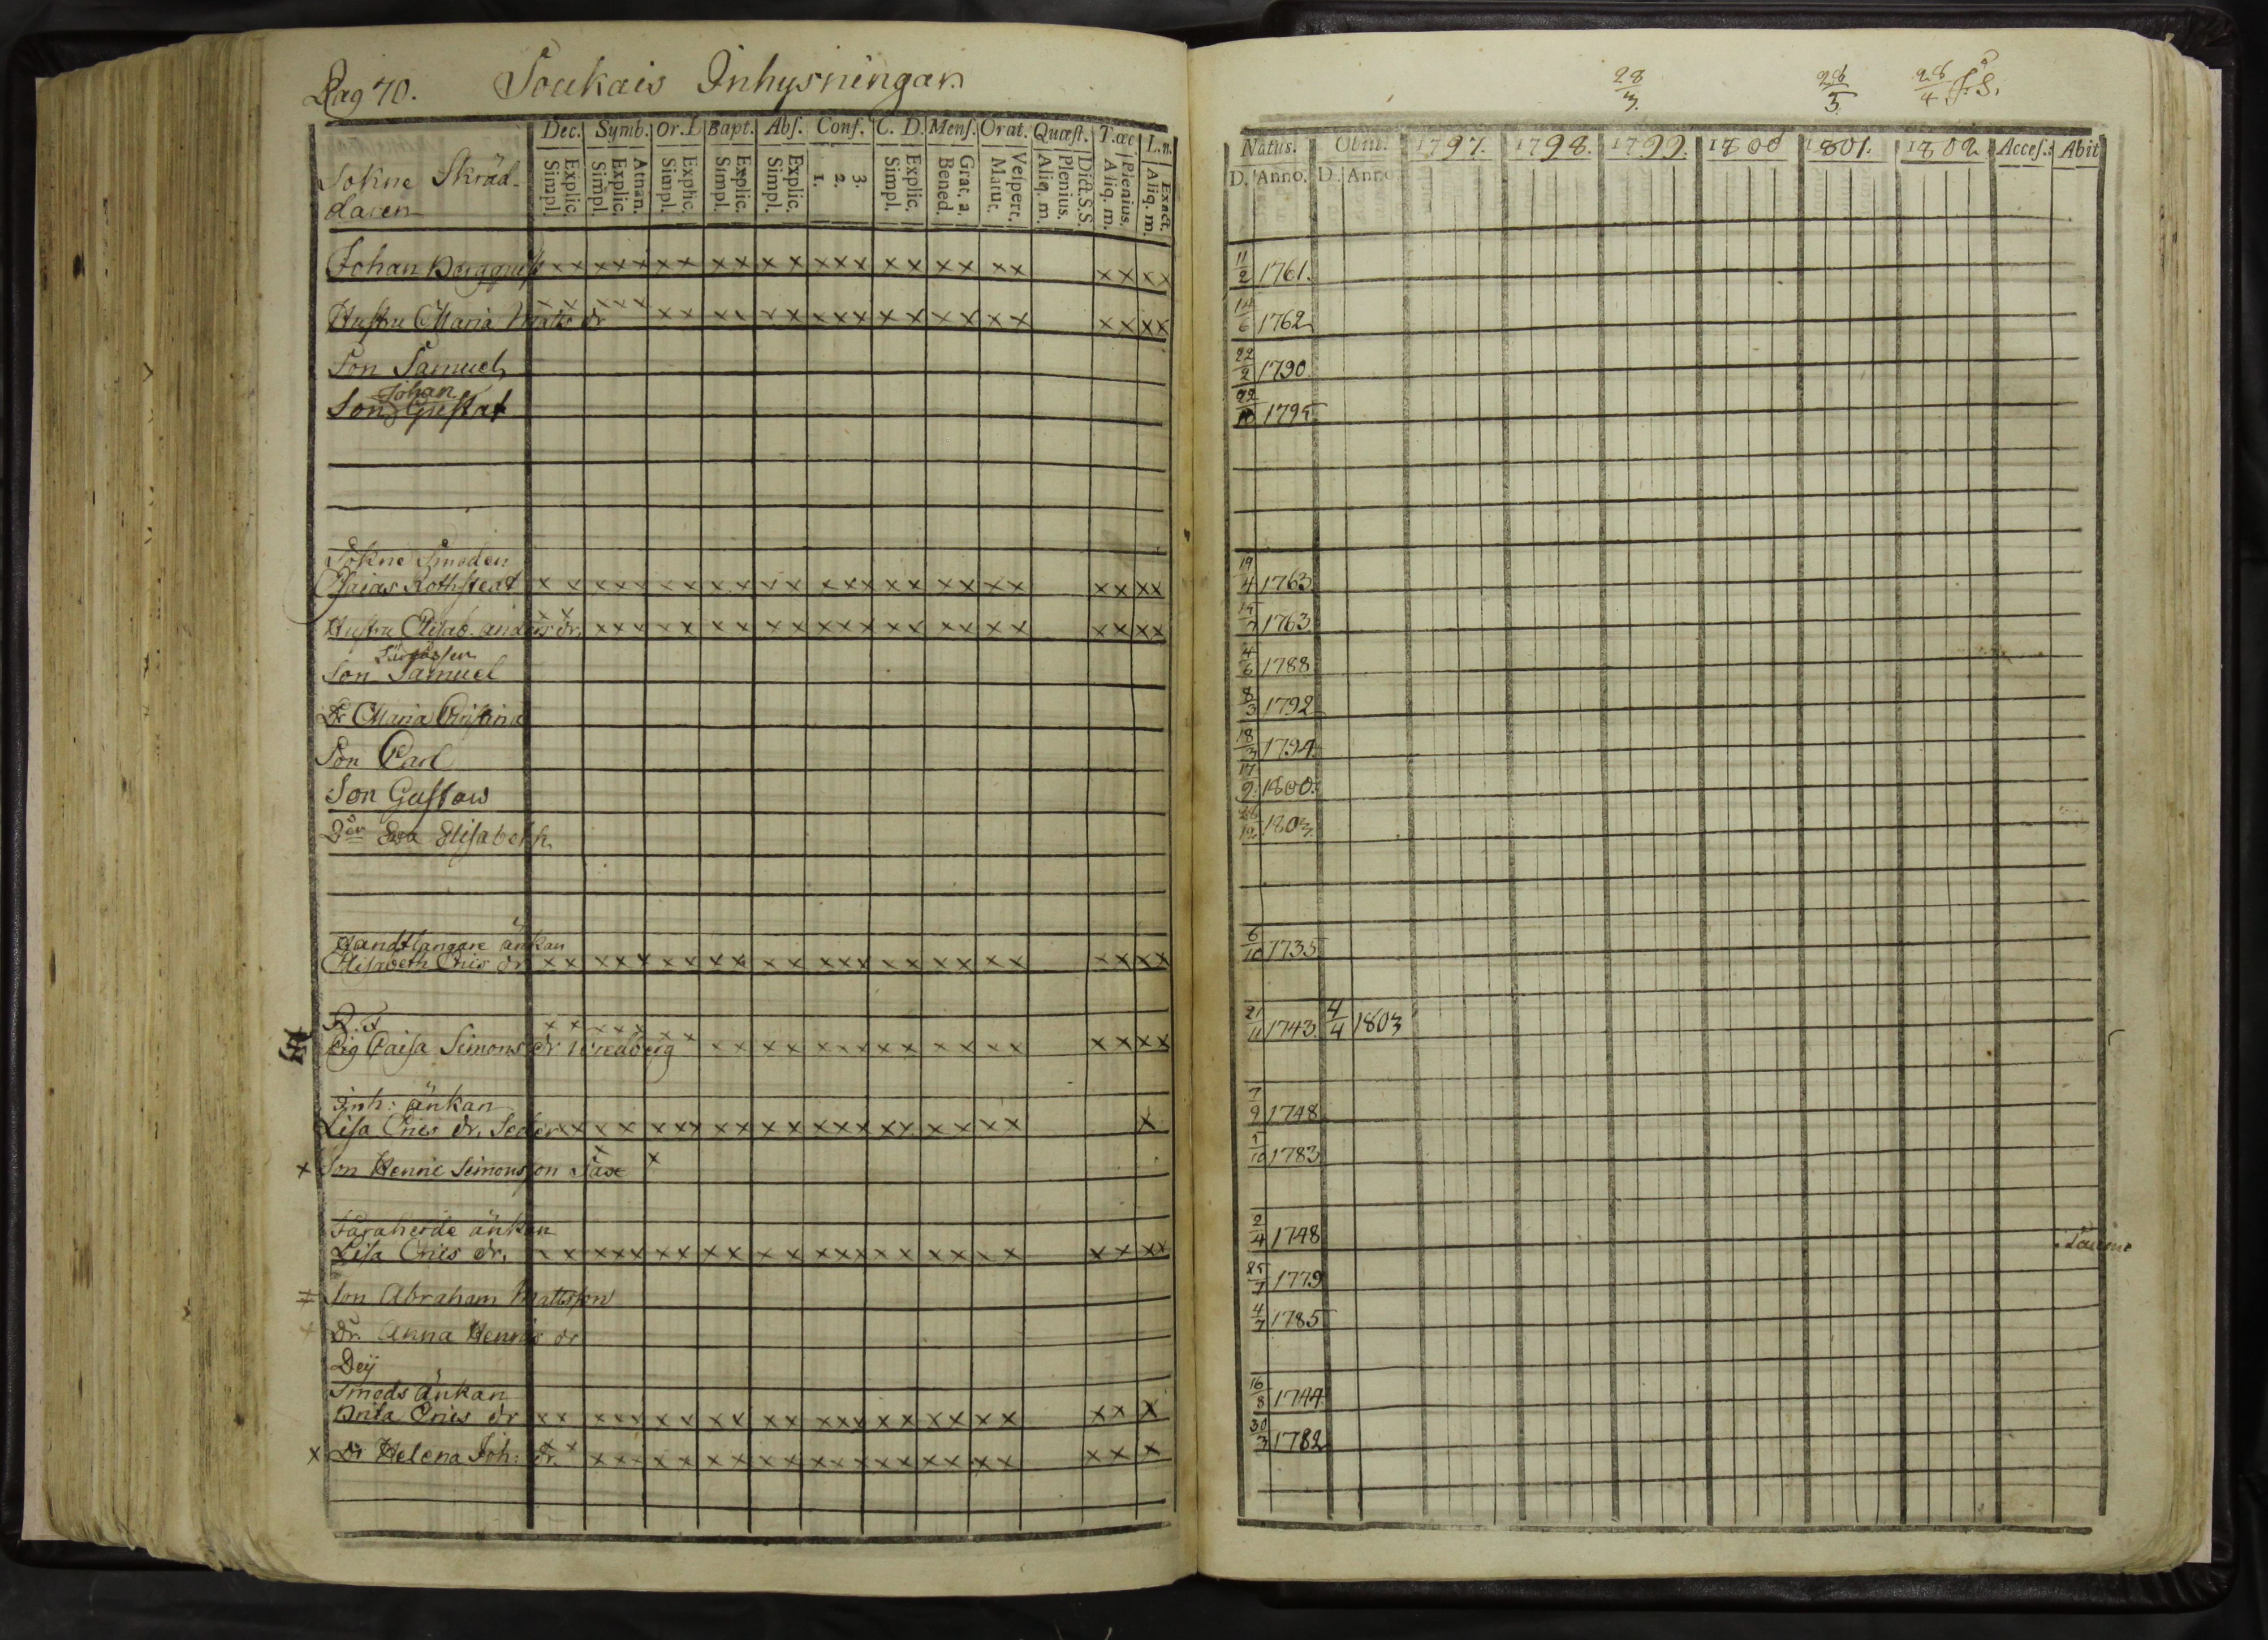 Pag 70. Soukais Inhysningar.
Dec. Symb. Or. D. Bapt. Abs. Conf. C. D. Mens. Orat. Quæst. T. œc. L. n.
Explic. Simpl. Atnan. Explic. Simpl. Explic. Simpl. Explic. Simpl. Explic. Simpl. 3. 2. 1. Explic. Simpl. Grat. a. Bened. Vespert. Matut. Dict. S. S. Plenius. Aliq. m. Plenius. Aliq. m. Exact. Aliq. m.
Sokne Skräd-
daren
Johan
Hustru Maria Mats dr
Son Samuel
Johan
Son Gustaf
Sokne Smeden
Esaias Rothstedt
Hustru Elisab. anders dr.
Son Samuel
Dr Maria Christina
Son Carl
Son Gustaw
Dr Eva Elisabeth.
Handtlangare änkan
Elisabeth Erics dr
Pig Caisa Simons dr
inh: änkan
Lisa Erics dr.
Son Henric Simonsson Sax
Fåraherde änkan
Lisa Erics dr.
Son Abraham Mattsson
Dr. Anna Henrics dr
Dey
Smeds änkan
Anna Erics dr
Dr Helena Joh: dr.
28/3. 28/3. 28/4
Natus. Obiit. 1797. 1798. 1799. 1800 1801. 1802. Acces. Abit
D. Anno. D. Anno
11/2 1761.
14/6 1762
22/2 1790
22/10 1795
19/4 1763
15/7 1763
4/6 1788
8/3 1792
18/3 1794
17/9 1800.
28/12 1803.
6/10 1735
21/11 1743. 4/4 1803
7/9 1748
5/10 1783
2/4 1748
25/7 1779
4/7 1785
16/8 1744
30/3 1782